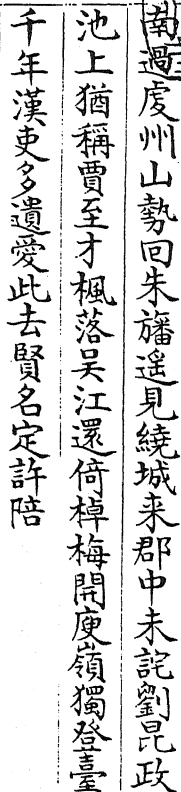 南過虔州山勢回朱旛遥見繞城来郡中未詫劉昆政
池上猶稱賈至才楓落吴江還倚棹梅開庾嶺獨登臺
千年漢吏多遺愛此去賢名定許陪